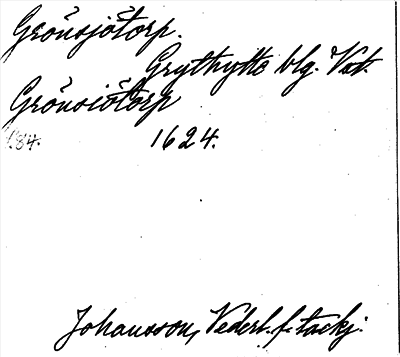 Grönsjötorp.
Grythytte blg. Vstm.
Grönsiötorp
s. 84. 1624.
Johansson, Vederl. f. tackj.